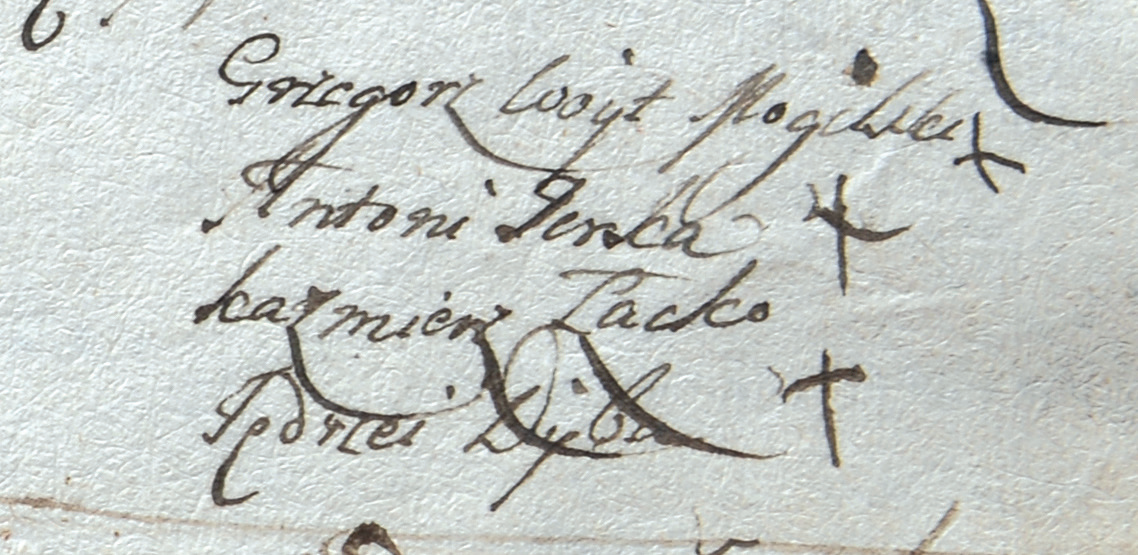 Grzegorz Woÿt Mogilski +
Antoni Serka +
kazmierz Zacko
Jędrzei Dÿba +